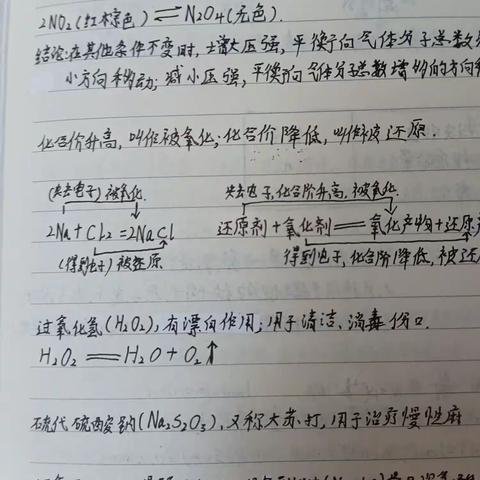 2NO₂(红棕色)⇌N₂O₄(无色).
结论:在其他条件不变时,增大压强,平衡向气体分子总数
小方向移动;减小压强,平衡向气体分子总数增多的方向
化合价升高,叫做被氧化;化合价降低,叫做被还原.
(失去电子)被氧化 失去电子,化合价升高,被氧化
2Na+Cl₂=2NaCl 还原剂+氧化剂══氧化产物+还原
(得到电子)被还原 得到电子,化合价降低,被还
过氧化氢(H₂O₂),有漂白作用;用于清洁、消毒伤口.
H₂O₂══H₂O+O₂↑
硫代硫酸钠(Na₂S₂O₃),又称大苏打,用于治疗慢性麻